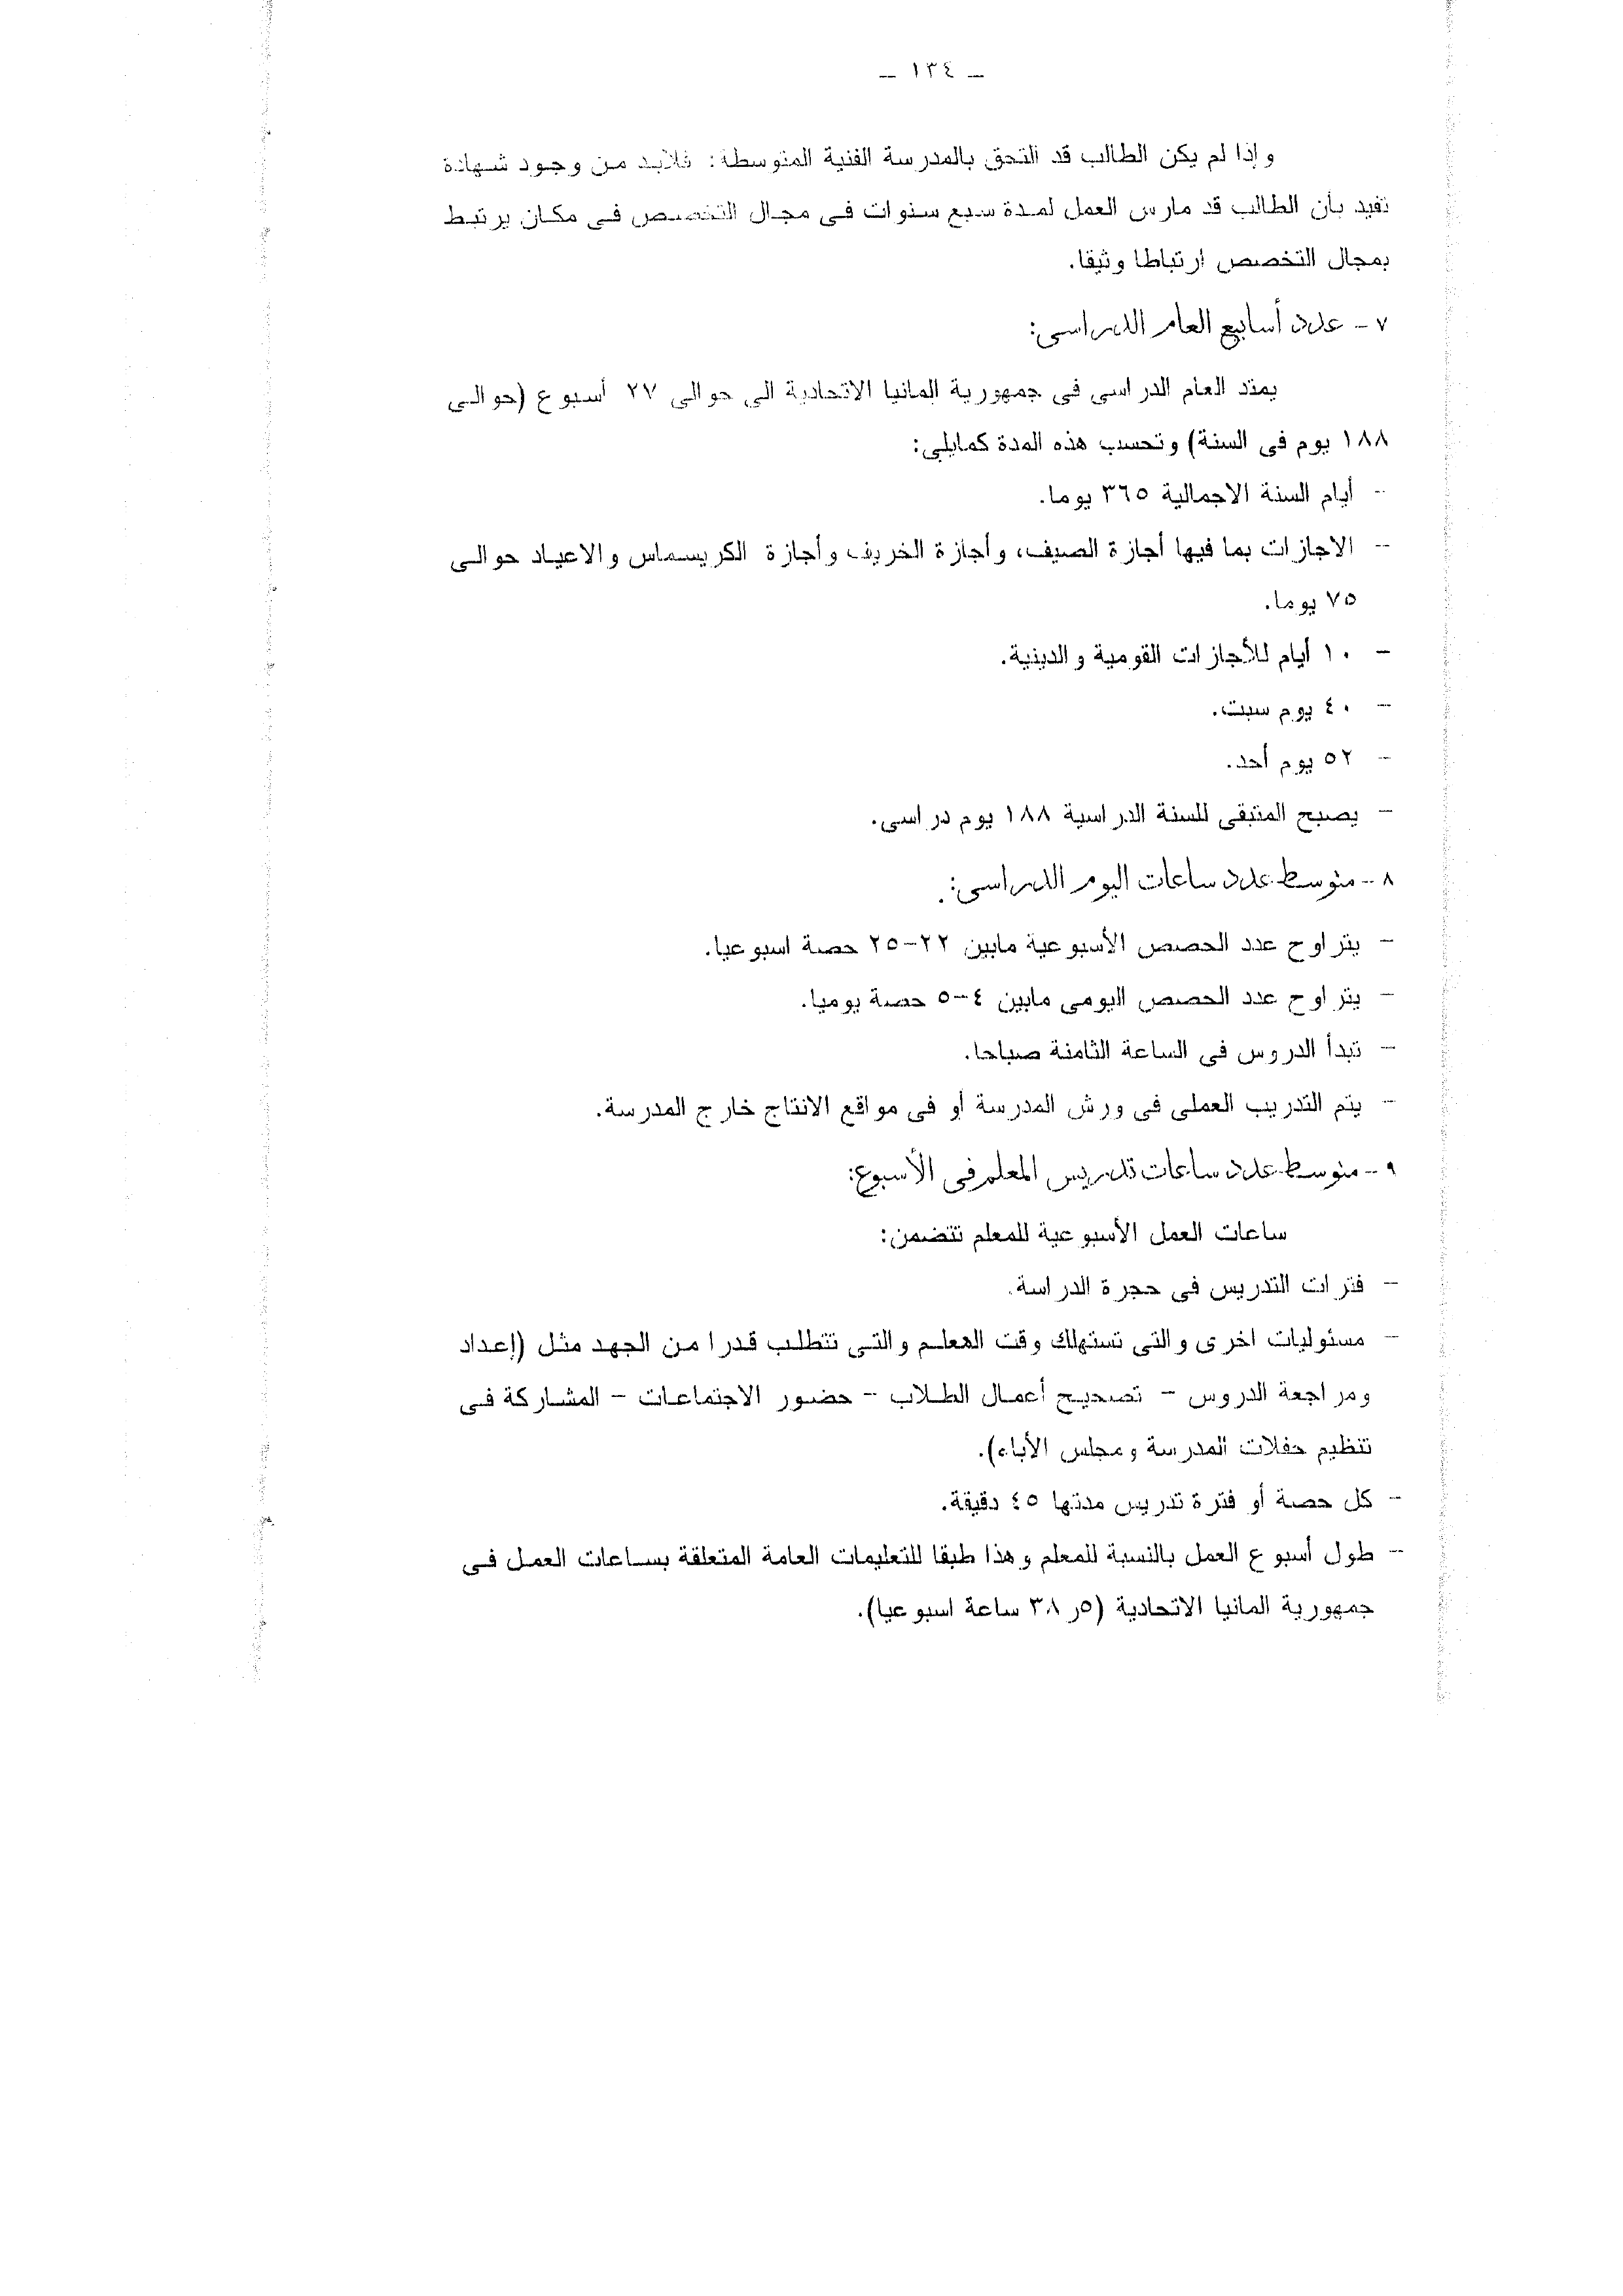 – ١٣٤ –
وإذا لم يكن الطالب قد التحق بالمدرسة الفنية المتوسطة: فلابد من وجود شهادة
تفيد بأن الطالب قد مارس العمل لمدة سبع سنوات فى مجال التخصص فى مكان يرتبط
بمجال التخصص ارتباطا وثيقا.
٧ - عدد أسابيع العام الدراسى:
يمتد العام الدراسى فى جمهورية المانيا الاتحادية الى حوالى ٢٧ أسبوع (حوالى
١٨٨ يوم فى السنة) وتحسب هذه المدة كمايلى:
- أيام السنة الاجمالية ٣٦٥ يوما.
- الاجازات بما فيها أجازة الصيف، وأجازة الخريف وأجازة الكريسماس والاعياد حوالى
٧٥ يوما.
- ١٠ أيام للأجازات القومية والدينية.
- ٤٠ يوم سبت.
- ٥٢ يوم أحد.
- يصبح المتبقى للسنة الدراسية ١٨٨ يوم دراسى.
٨ - متوسط عدد ساعات اليوم الدراسى:
- يتراوح عدد الحصص الأسبوعية مابين ٢٢-٢٥ حصة اسبوعيا.
- يتراوح عدد الحصص اليومى مابين ٤-٥ حصة يوميا.
- تبدأ الدروس فى الساعة الثامنة صباحا.
- يتم التدريب العملى فى ورش المدرسة أو فى مواقع الانتاج خارج المدرسة.
٩ - متوسط عدد ساعات تدريس المعلم فى الأسبوع:
ساعات العمل الأسبوعية للمعلم تتضمن:
- فترات التدريس فى حجرة الدراسة.
- مسئوليات اخرى والتى تستهلك وقت المعلم والتى تتطلب قدرا من الجهد مثل (إعداد
ومراجعة الدروس - تصحيح أعمال الطلاب - حضور الاجتماعات - المشاركة فى
تنظيم حفلات المدرسة ومجلس الأباء).
- كل حصة أو فترة تدريس مدتها ٤٥ دقيقة.
- طول أسبوع العمل بالنسبة للمعلم وهذا طبقا للتعليمات العامة المتعلقة بساعات العمل فى
جمهورية المانيا الاتحادية (٥ر٣٨ ساعة اسبوعيا).